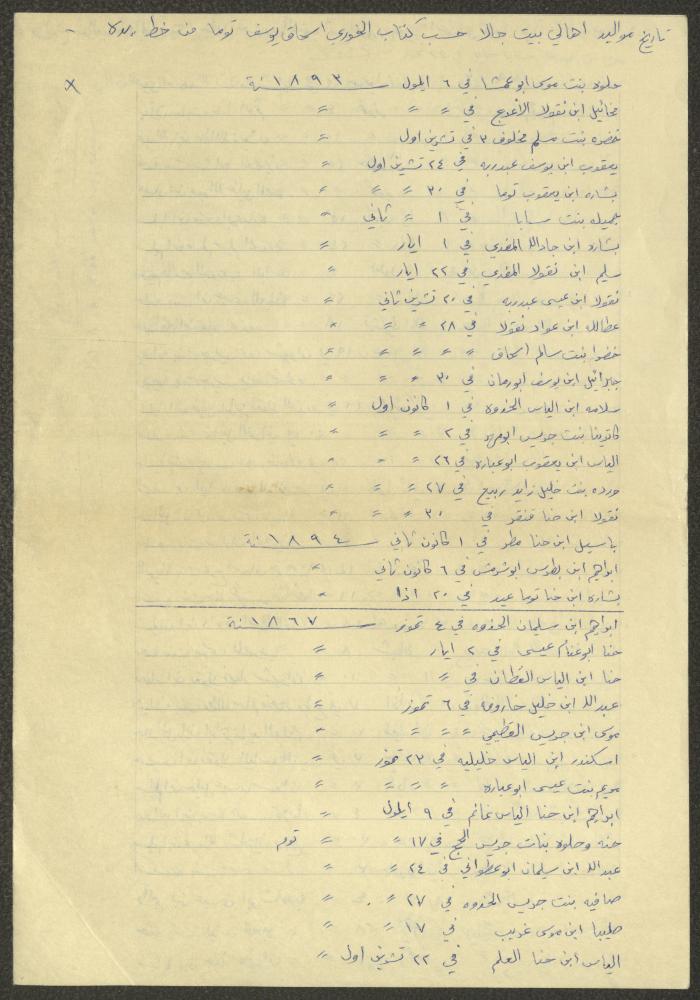 تاريخ مواليد اهالي بيت جالا حسب كتاب الخوري اسحاق يوسف توما من خط يده -
x حلوه بنت موسى ابو عمشا في ٦ ايلول سنة ١٨٩٣
مخائيل ابن نقولا الأعرج في〃 〃 〃
خضره بنت سلم مخلوف ٣ في تشرين اول 〃
يعقوب ابن يوسف عبدربه في ٢٤ تشرين اول 〃
بشاره ابن يعقوب توما في ٣٠ 〃 〃 〃
جميله بنت سابا في ١ 〃 ثاني 〃
بشاره ابن جادالله المغدي في ١ ايار 〃
سليم ابن نقولا المغدي في ٢٢ ايار 〃
نقولا ابن عيسى عبدربه في ٢٠ تشرين ثاني 〃
عطالله ابن عواد نقولا في ٢٨ 〃 〃 〃
خضرا بنت سالم اسحاق 〃 〃 〃 〃 〃
جبرائيل ابن يوسف ابورمان في ٣٠ 〃 〃 〃
سلامه ابن الياس الخذوه في ١ كانون اول 〃
كاترينا بنت جريس ابو في ٢ 〃 〃 〃
الياس ابن يعقوب ابوعباره في ٢٦ 〃 〃 〃
ورده بنت خليل زايد ربيع في ٢٧ 〃 〃 〃
نقولا ابن حنا قنقر في ٣٠ 〃 〃 〃
باسيل ابن حنا مطر في ١ كانون ثاني سنة ١٨٩٤
ابراهيم ابن بطرس ابو في ٦ كانون ثاني 〃
بشاره ابن حنا توما عيد في ٢٠ اذا 〃
ابراهيم ابن سليمان الخذوه في ٤ تموز سنة ١٨٦٧
حنا ابوغنام عيسى في ٢ ايار 〃
حنا ابن الياس القطان في 〃 〃 〃
عبدالله ابن خليل خاروفه في ٦ تموز 〃
موسى ابن جريس القطيمي 〃 〃 〃 〃
اسكندر ابن الياس خليليه في ٢٣ تموز 〃
مريم بنت عيسى ابوعباره 〃 〃 〃 〃 〃
ابراهيم ابن حنا الياس غانم في ٩ ايلول 〃
حنه وحلوه بنات جريس الحج في ١٧ 〃 〃 توم
عبدالله ابن سليمان ابوعطواني في ٢٤ 〃 〃
صافيه بنت جريس الخذوه في ٢٧ 〃 〃
صليبا ابن موسى غريب في ١٧ 〃 〃
الياس ابن حنا العلم في ٢٢ تشرين اول 〃